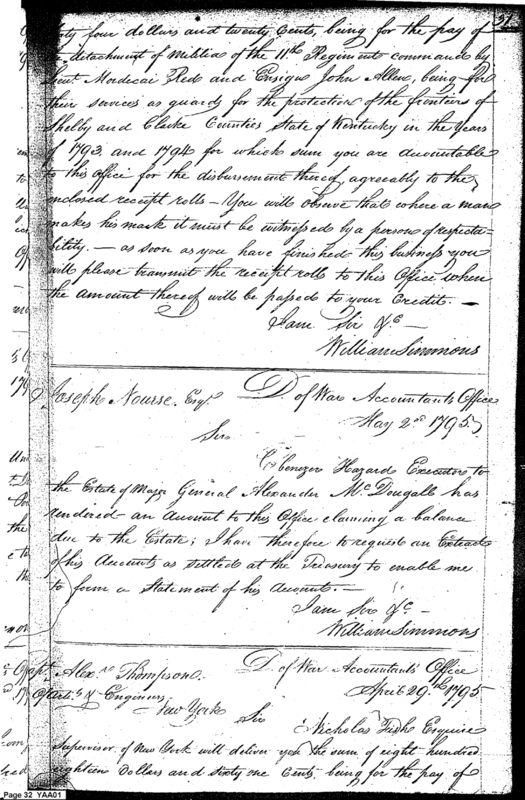 31
four dollars and twenty Cents, being for the pay of
detachment of Militia of the 11th Regiment command by
Lieut. Mordecai Red and Ensign John Allen, being for
their services as guards for the protection of the frontiers of
Shelby and Clarke Counties State of Kentucky in the Years
of 1793. and 1794 for which sum you are accountable
to this office for the disbursement thereof, agreeably to the
enclosed receipt rolls – You will observe that where a man
makes his mark it must be witnessed by a person of respecta-
bility. – as soon as you have finished this business you
will please transmit the receipt rolls to this Office when
the amount thereof will be passed to your Credit. –
I am Sir &c –
William Simmons
Joseph Nourse. Esqr. D. of War Accountants Office
May 2nd 1795
Sir
Ebenezer Hazard Executor to
the Estate of Major General Alexander McDougall has
rendered an account to this Office claiming a balance
due to the Estate; I have therefore to request an Extract
of his Accounts as settled at the Treasury to enable me
to form a Statement of his Accounts. –
I am Sir &c –
William Simmons
Capt. Alexr. Thompson. D. of War Accountants' Office
Artis. & Engineers. April 29th 1795
New York Sir
Nicholas Fish Esquire
Supervisor of New York will deliver you the sum of eight hundred
eighteen Dollars and sixty one Cents. being for the pay of
Page 32 YAA01